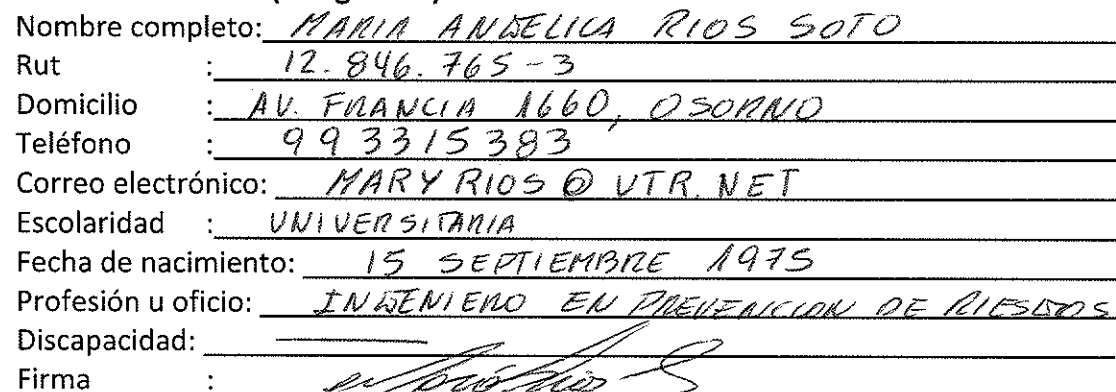 Nombre completo: MARIA ANGELICA RIOS SOTO
Rut : 12.846.765-3
Domicilio : AV. FRANCIA 1660, OSORNO
Teléfono : 993315383
Correo electrónico: MARYRIOS@VTR.NET
Escolaridad : UNIVERSITARIA
Fecha de nacimiento: 15 SEPTIEMBRE 1975
Profesión u oficio: INGENIERO EN PREVENCION DE RIESGOS
Discapacidad: —
Firma :